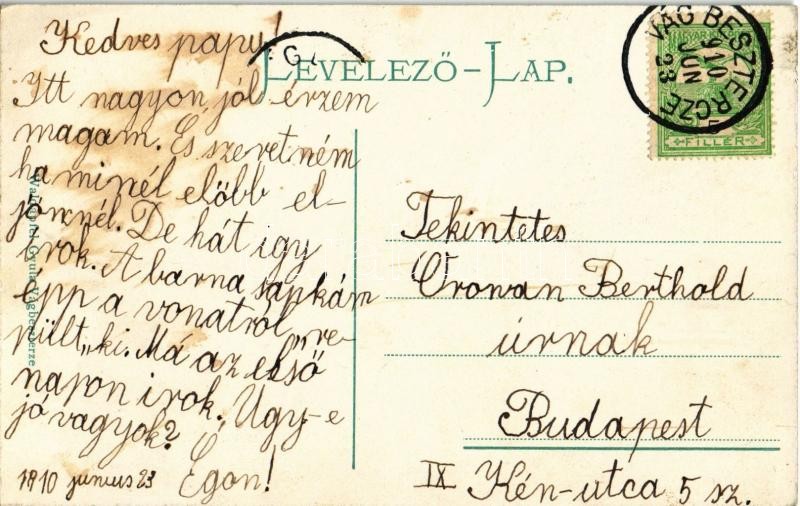 Kedves papu!
LEVELEZŐ-LAP.
Itt nagyon jól érzem
magam. És szeretném
ha minél előbb el-
jönnél. De hát igy
irok. A barna sapkám
épp a vonatról „re-
pült„ ki. Má az első
napon irok. Úgy-e
jó vagyok?
Egon!
1910 junius 23
Gyula Vágbeszterze
VÁG BESZTERCZE
910 JUN 23
FILLÉR
Tekintetes
Orowan Berthold
úrnak
Budapest
IX Kén-utca 5 sz.